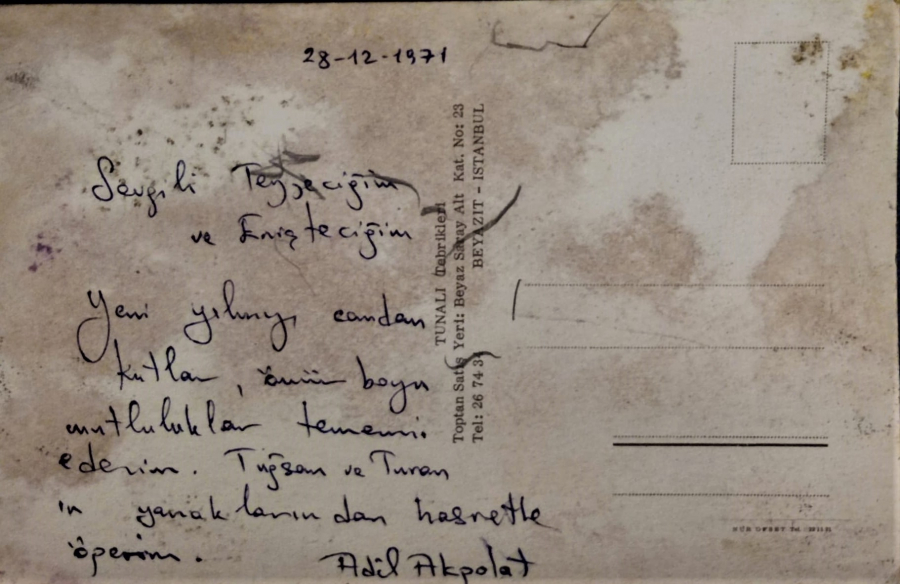 28-12-1971
Sevgili Teyzeciğim
ve Enişteciğim
Yeni yılınızı candan
kutlar, ömür boyu
mutluluklar temenni
ederim. Tuğsan ve Turan
ın yanaklarından hasretle
öperim.
Adil Akpolat
TUNALI Tebrikleri
Toptan Satış Yeri: Beyaz Saray Alt Kat. No: 23
Tel: 26 74 34 BEYAZIT - ISTANBUL
OFSET Tel.